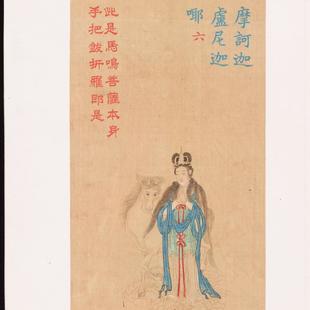 摩訶迦
盧尼迦
㖿 六
此是馬鳴菩薩本身
手把鈸折羅即是